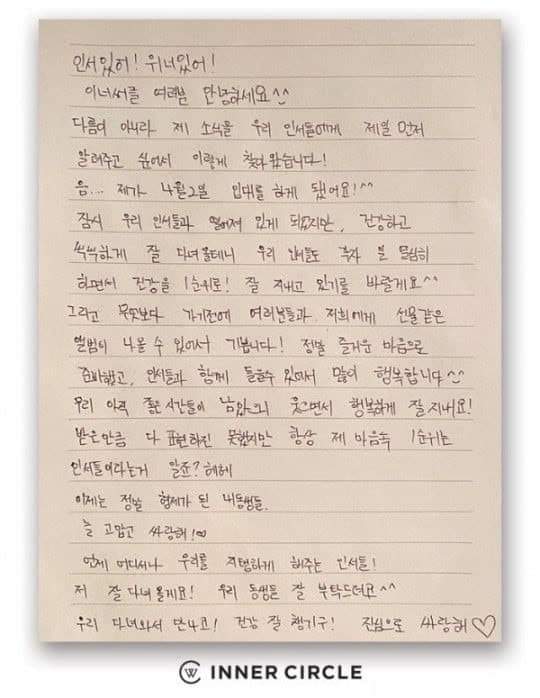 인서있어! 위너있어!
이너써클 여러분 안녕하세요^^
다름이 아니라 제 소식을 우리 인서들에게 제일 먼저
알려주고 싶어서 이렇게 찾아왔습니다!
음... 제가 4월2일 입대를 하게 됐어요!^^
잠시 우리 인서들과 떨어져 있게 되었지만, 건강하고
씩씩하게 잘 다녀올테니 우리 인서들도 각자 일 열심히
하면서 건강을 1순위로! 잘 지내고 있기를 바랄게요^^
그리고 무엇보다 가기전에 여러분들과 저희에게 선물같은
앨범이 나올 수 있어서 기쁩니다! 정말 즐거운 마음으로
준비했고, 인서들과 함께 들을수 있어서 많이 행복합니다^^
우리 아직 좋은시간들이 남았으니 웃으면서 행복하게 잘지내요!
받은만큼 다 표현하진 못했지만 항상 제 마음속 1순위는
인서들이라는거 알죠? 헤헤
이제는 정말 형제가 된 내동생들.
늘 고맙고 싸랑해!
언제 어디서나 우리를 지탱하게 해주는 인서들!
저 잘다녀올게요! 우리 동생들 잘 부탁드려고^^
우리 다녀와서 만나고! 건강 잘 챙기구! 진심으로 싸랑해♡
INNER CIRCLE